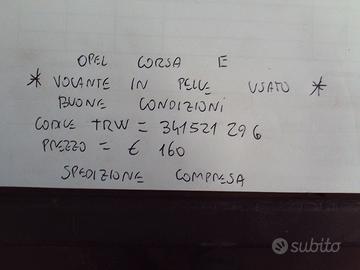 OPEL CORSA E
* VOLANTE IN PELLE USATO *
BUONE CONDIZIONI
CODICE TRW = 341521296
PREZZO = € 160
SPEDIZIONE COMPRESA
subito